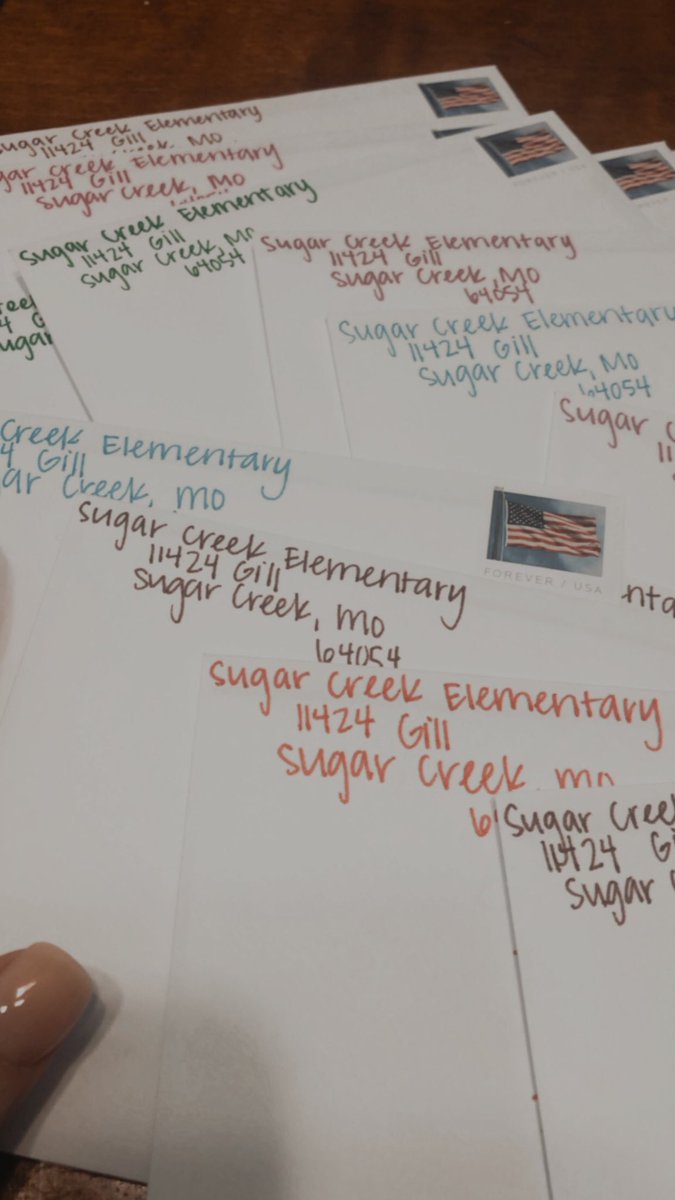 Sugar Creek Elementary
11424 Gill
Mo
Creek Elementary
11424 Gill
Sugar Creek, Mo
FOREVER / USA
Sugar Creek Elementary
11424 Gill
Sugar Creek, Mo
64054
Sugar Creek Elementary
11424 Gill
Sugar Creek, Mo
64054
Sugar Creek Elementary
11424 Gill
Sugar Creek, Mo
64054
Sugar
11
Creek Elementary
4 Gill
Creek, Mo
FOREVER / USA
Sugar Creek Elementary
11424 Gill
Sugar Creek, Mo
64054
Sugar Creek Elementary
11424 Gill
Sugar Creek, Mo
6
Sugar Creek
11424
Sugar